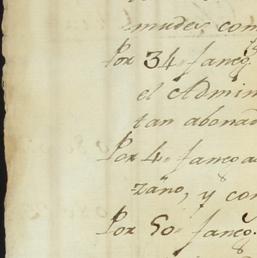 mudes, com
Por 34 faneg.s
el Admin
tan abonad
Por 4 fanega
zano, y con
Por 50 faneg.s